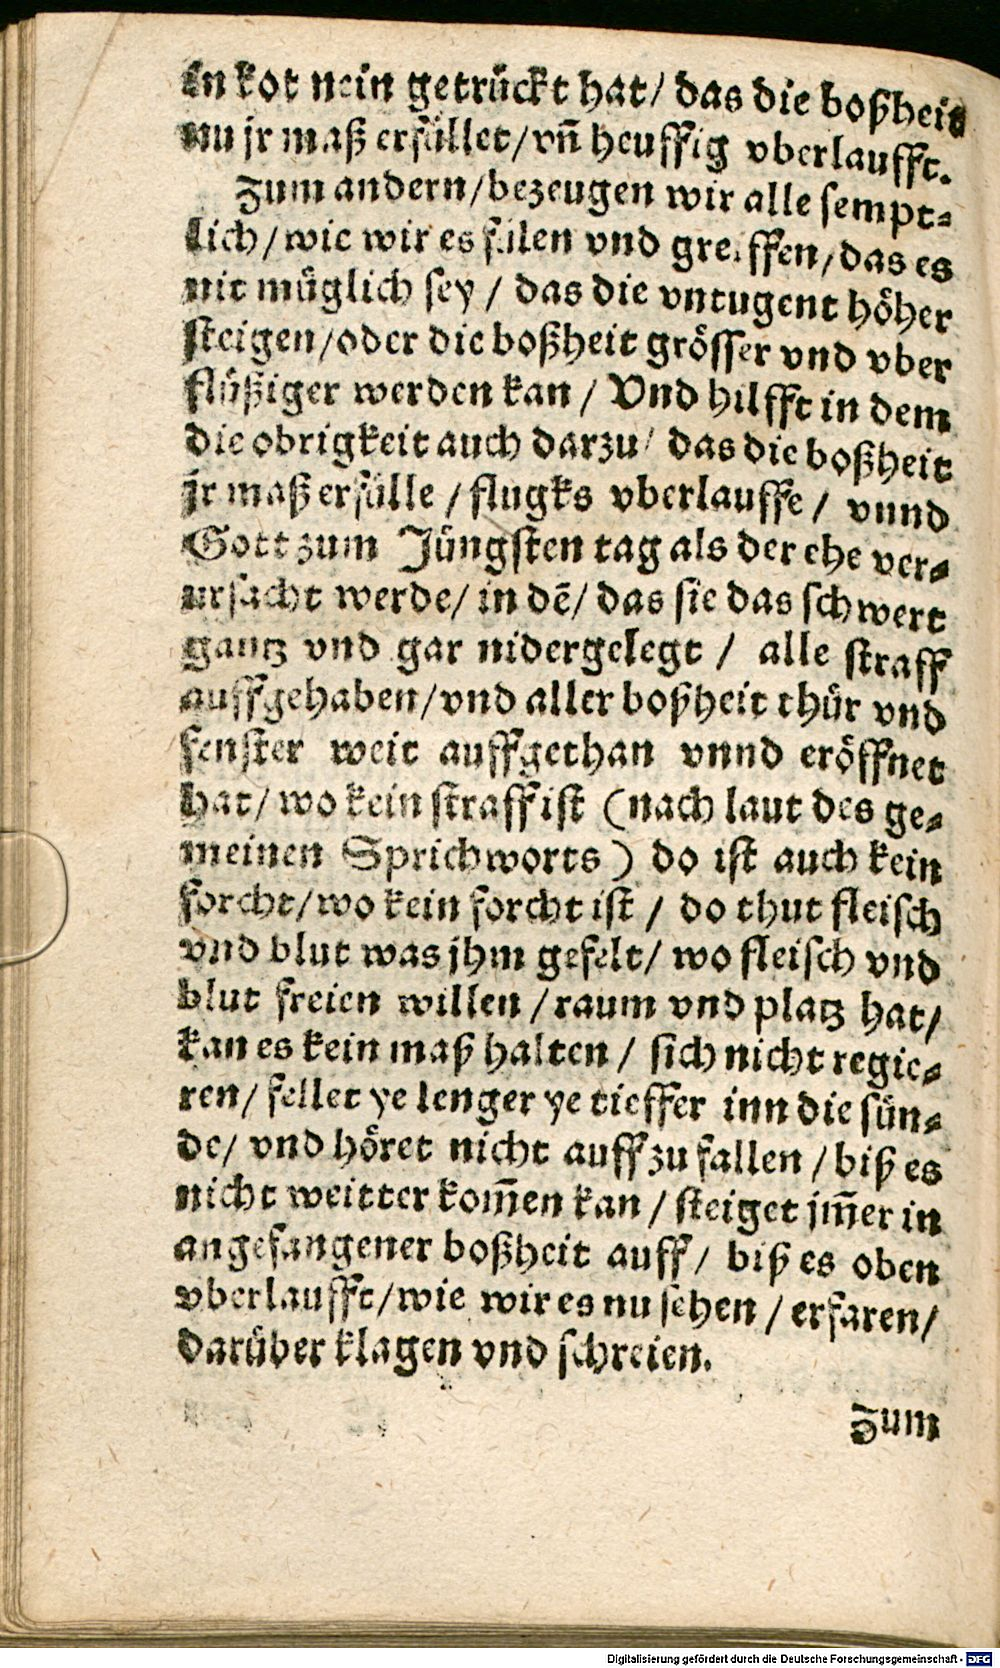 in kot nein getrückt hat/ das die boßheit
nu jr maß erfüllet/ vñ heuffig vberlaufft.
Zum andern/ bezeugen wir alle sempt⸗
lich/ wie wir es fülen vnd greiffen/ das es
nit müglich sey/ das die vntugent höher
steigen/ oder die boßheit grösser vnd vber
flüßiger werden kan/ Vnd hilfft in dem
die obrigkeit auch darzu/ das die boßheit
jr maß erfülle/ flugks vberlauffe/ vnnd
Gott zum Jüngsten tag als der ehe ver⸗
ursacht werde/ in dẽ/ das sie das schwert
gantz vnd gar nidergelegt/ alle straff
auffgehaben/ vnd aller boßheit thür vnd
fenster weit auffgethan vnnd eröffnet
hat/ wo kein straff ist (nach laut des ge⸗
meinen Sprichworts) do ist auch kein
forcht/ wo kein forcht ist/ do thut fleisch
vnd blut was jhm gefelt/ wo fleisch vnd
blut freien willen/ raum vnd platz hat/
kan es kein maß halten/ sich nicht regie⸗
ren/ fellet ye lenger ye tieffer inn die sün⸗
de/ vnd höret nicht auff zu fallen/ biß es
nicht weitter kom̃en kan/ steiget jm̃er in
angefangener boßheit auff/ biß es oben
vberlaufft/ wie wir es nu sehen/ erfaren/
darüber klagen vnd schreien.
Zum
Digitalisierung gefördert durch die Deutsche Forschungsgemeinschaft - DFG